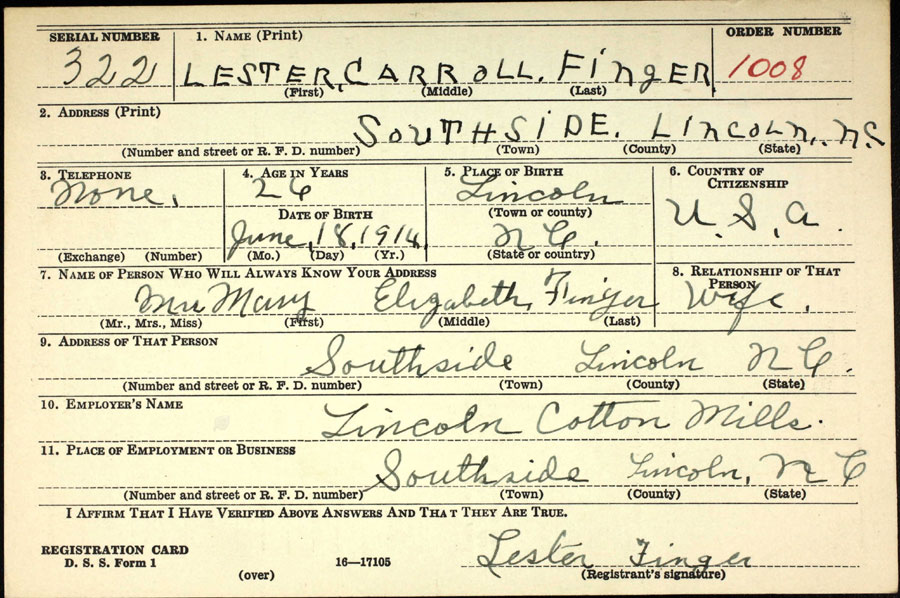 SERIAL NUMBER 1. NAME (Print) ORDER NUMBER
322 LESTER, CARROLL. FINGER 1008
(First) (Middle) (Last)
2. ADDRESS (Print)
SOUTHSIDE. LINCOLN, N.C
(Number and street or R. F. D. number) (Town) (County) (State)
3. TELEPHONE 4. AGE IN YEARS 5. PLACE OF BIRTH 6. COUNTRY OF CITIZENSHIP
None. 26 Lincoln U.S.A.
DATE OF BIRTH (Town or county)
June, 18, 1914 N C.
(Exchange) (Number) (Mo.) (Day) (Yr.) (State or country)
7. NAME OF PERSON WHO WILL ALWAYS KNOW YOUR ADDRESS 8. RELATIONSHIP OF THAT PERSON
Mrs Mary Elizabeth, Finger Wife.
(Mr., Mrs., Miss) (First) (Middle) (Last)
9. ADDRESS OF THAT PERSON
Southside Lincoln N C.
(Number and street or R. F. D. number) (Town) (County) (State)
10. EMPLOYER'S NAME
Lincoln Cotton Mills.
11. PLACE OF EMPLOYMENT OR BUSINESS
Southside Lincoln, N C
(Number and street or R. F. D. number) (Town) (County) (State)
I AFFIRM THAT I HAVE VERIFIED ABOVE ANSWERS AND THAT THEY ARE TRUE.
REGISTRATION CARD
D. S. S. Form 1 16—17105 Lester Finger
(over) (Registrant's signature)